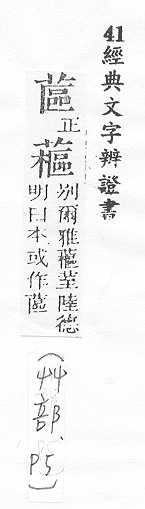 41 經典文字辨證書
蓲正藲
別爾雅藲荎陸德
明曰本或作蓲
(艸部、P5)